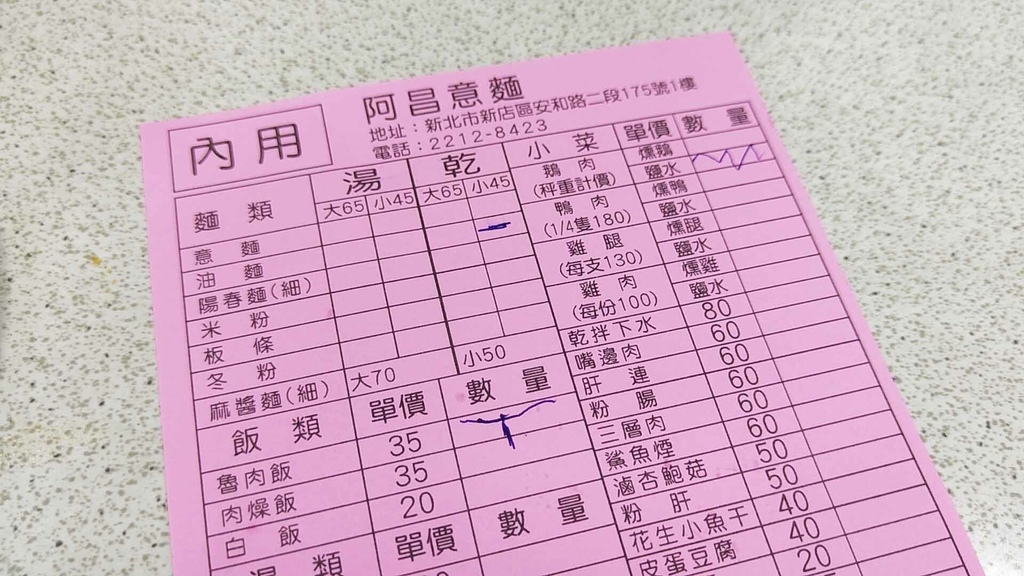 內用
阿昌意麵
地址：新北市新店區安和路二段175號1樓
電話：2212-8423
麵類 湯 乾
大65 小45 大65 小45
意麵
油麵
陽春麵(細)
米粉
板條
冬粉
麻醬麵(細) 大70 小50
飯類 單價 數量
魯肉飯 35
肉燥飯 35
白飯 20
湯類 單價 數量
小菜 單價 數量
鵝肉 燻鵝
(秤重計價) 鹽水
鴨肉 燻鴨
(1/4隻180) 鹽水
雞腿 燻腿
(每支130) 鹽水
雞肉 燻雞
(每份100) 鹽水
乾拌下水 80
嘴邊肉 60
肝連 60
粉腸 60
三層肉 60
鯊魚煙 60
滷杏鮑菇 50
粉肝 50
花生小魚干 40
皮蛋豆腐 40
20